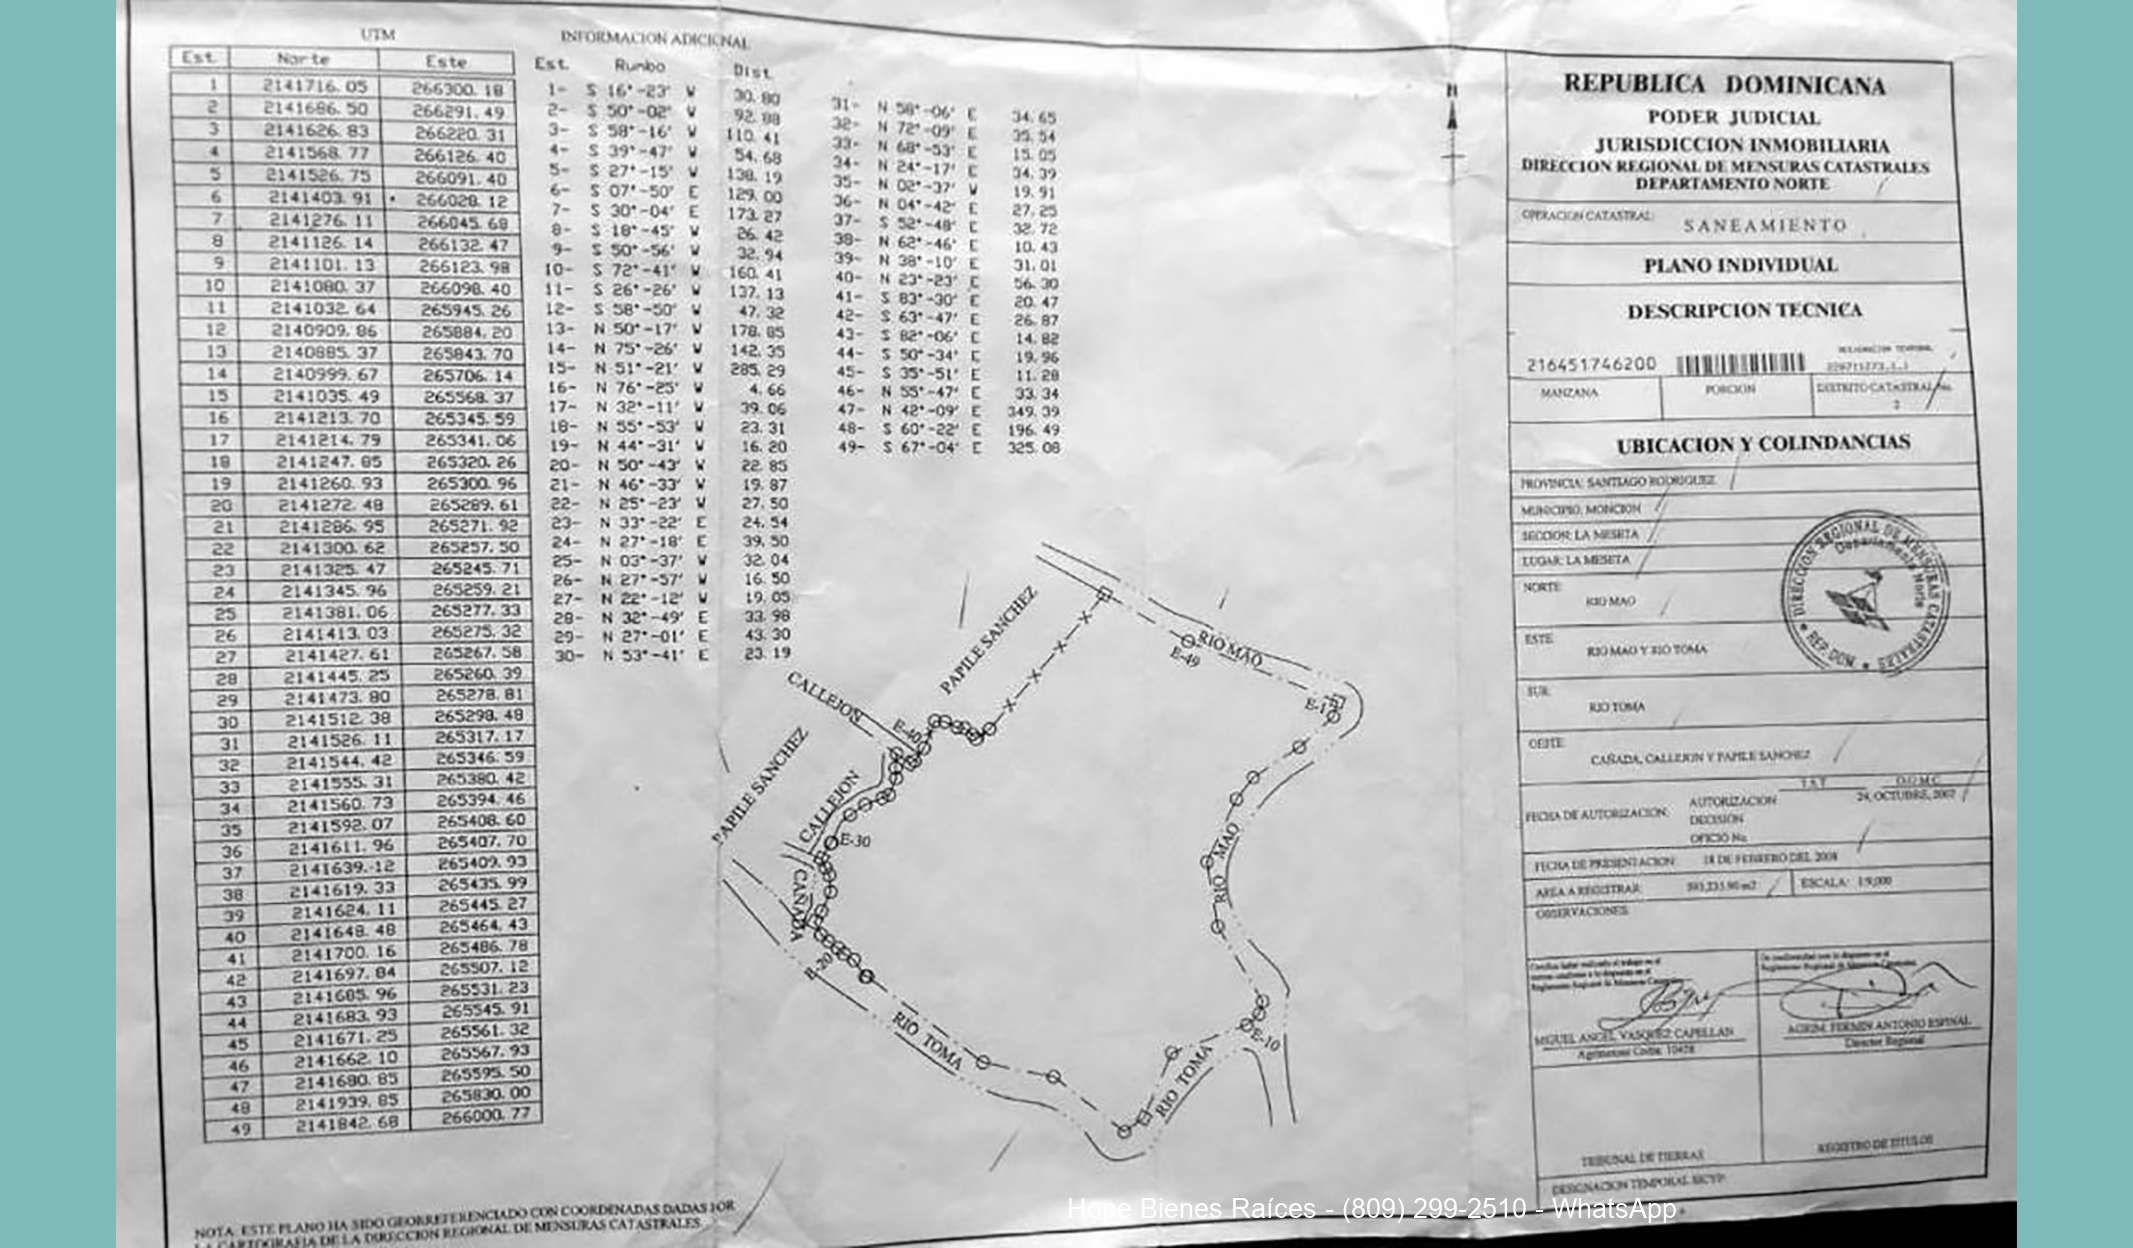 UTM
Est. Norte Este
1 2141716.05 266300.18
2 2141686.50 266291.49
3 2141626.83 266220.31
4 2141568.77 266126.40
5 2141526.75 266091.40
6 2141403.91 266028.12
7 2141276.11 266045.68
8 2141126.14 266132.47
9 2141101.13 266123.98
10 2141080.37 266098.40
11 2141032.64 265945.26
12 2140909.86 265884.20
13 2140885.37 265843.70
14 2140999.67 265706.14
15 2141035.49 265568.37
16 2141213.70 265345.59
17 2141214.79 265341.06
18 2141247.85 265320.26
19 2141260.93 265300.96
20 2141272.48 265289.61
21 2141286.95 265271.92
22 2141300.62 265257.50
23 2141325.47 265245.71
24 2141345.96 265259.21
25 2141381.06 265277.33
26 2141413.03 265275.32
27 2141427.61 265267.58
28 2141445.25 265260.39
29 2141473.80 265278.81
30 2141512.38 265298.48
31 2141526.11 265317.17
32 2141544.42 265346.59
33 2141555.31 265380.42
34 2141560.73 265394.46
35 2141592.07 265408.60
36 2141611.96 265407.70
37 2141639.12 265409.93
38 2141619.33 265435.99
39 2141624.11 265445.27
40 2141648.48 265464.43
41 2141700.16 265486.78
42 2141697.84 265507.12
43 2141685.96 265531.23
44 2141683.93 265545.91
45 2141671.25 265561.32
46 2141662.10 265567.93
47 2141680.85 265595.50
48 2141939.85 265830.00
49 2141842.68 266000.77
INFORMACION ADICIONAL
Est. Rumbo Dist.
1- S 16°-23' W 30.80
2- S 50°-02' W 92.88
3- S 58°-16' W 110.41
4- S 39°-47' W 54.68
5- S 27°-15' W 138.19
6- S 07°-50' E 129.00
7- S 30°-04' E 173.27
8- S 18°-45' W 26.42
9- S 50°-56' W 32.94
10- S 72°-41' W 160.41
11- S 26°-26' W 137.13
12- S 58°-50' W 47.32
13- N 50°-17' W 178.85
14- N 75°-26' W 142.35
15- N 51°-21' W 285.29
16- N 76°-25' W 4.66
17- N 32°-11' W 39.06
18- N 55°-53' W 23.31
19- N 44°-31' W 16.20
20- N 50°-43' W 22.85
21- N 46°-33' W 19.87
22- N 25°-23' W 27.50
23- N 33°-22' E 24.54
24- N 27°-18' E 39.50
25- N 03°-37' W 32.04
26- N 27°-57' W 16.50
27- N 22°-12' W 19.05
28- N 32°-49' E 33.98
29- N 27°-01' E 43.30
30- N 53°-41' E 23.19
31- N 58°-06' E 34.65
32- N 72°-09' E 35.54
33- N 68°-53' E 15.05
34- N 24°-17' E 34.39
35- N 02°-37' W 19.91
36- N 04°-42' E 27.25
37- S 52°-48' E 32.72
38- N 62°-46' E 10.43
39- N 38°-10' E 31.01
40- N 23°-23' E 56.30
41- S 83°-30' E 20.47
42- S 63°-47' E 26.87
43- S 82°-06' E 14.82
44- S 50°-34' E 19.96
45- S 35°-51' E 11.28
46- N 55°-47' E 33.34
47- N 42°-09' E 349.39
48- S 60°-22' E 196.49
49- S 67°-04' E 325.08
N
PAPILE SANCHEZ
RIO MAO
E-49
E-1
CALLEJON
E-40
PAPILE SANCHEZ
CALLEJON
E-30
CAÑADA
E-20
RIO MAO
RIO TOMA
E-10
RIO TOMA
REPUBLICA DOMINICANA
PODER JUDICIAL
JURISDICCION INMOBILIARIA
DIRECCION REGIONAL DE MENSURAS CATASTRALES
DEPARTAMENTO NORTE
OPERACION CATASTRAL: SANEAMIENTO
PLANO INDIVIDUAL
DESCRIPCION TECNICA
DESIGNACION TEMPORAL
216451746200
MANZANA PORCION DISTRITO CATASTRAL No.
2
UBICACION Y COLINDANCIAS
PROVINCIA: SANTIAGO RODRIGUEZ
MUNICIPIO: MONCION
SECCION: LA MESETA
LUGAR: LA MESETA
NORTE:
RIO MAO
ESTE:
RIO MAO Y RIO TOMA
SUR:
RIO TOMA
OESTE:
CAÑADA, CALLEJON Y PAPILE SANCHEZ
DIRECCION REGIONAL DE MENSURAS CATASTRALES
Departamento Norte
REP. DOM.
T.S.T. D.G.M.C.
FECHA DE AUTORIZACION: AUTORIZACION 24, OCTUBRE, 2007
DECISION
OFICIO No.
FECHA DE PRESENTACION: 18 DE FEBRERO DEL 2008
AREA A REGISTRAR: ESCALA: 1:9,000
OBSERVACIONES:
MIGUEL ANGEL VASQUEZ CAPELLAN
AGRIM. FERMIN ANTONIO ESPINAL
Director Regional
TRIBUNAL DE TIERRAS
REGISTRO DE TITULOS
DESIGNACION TEMPORAL
NOTA: ESTE PLANO HA SIDO GEORREFERENCIADO CON COORDENADAS DADAS POR
LA CARTOGRAFIA DE LA DIRECCION REGIONAL DE MENSURAS CATASTRALES
Hope Bienes Raíces - (809) 299-2510 - WhatsApp